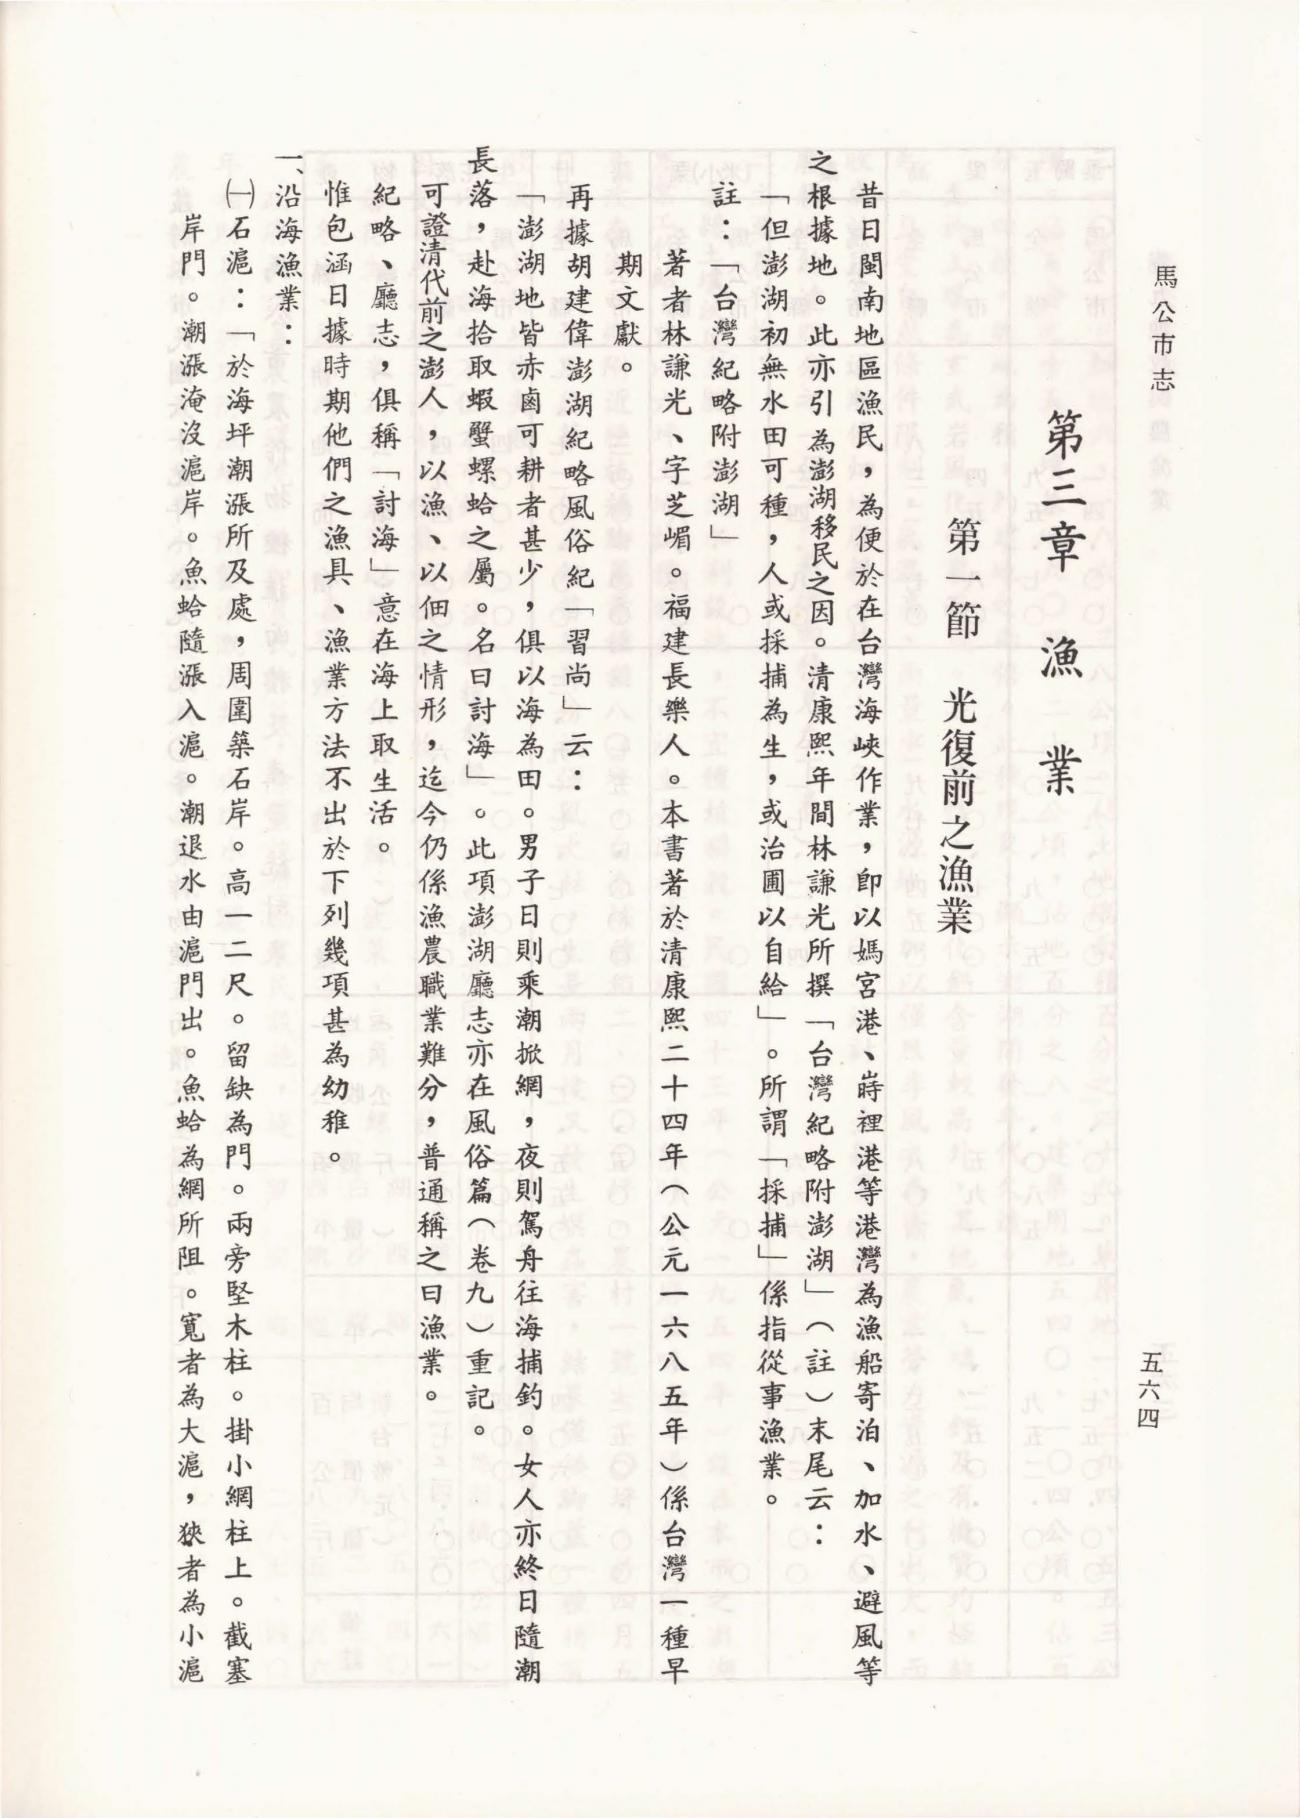 馬公市志
五六四
第三章　漁　業
第一節　光復前之漁業
昔日閩南地區漁民，為便於在台灣海峽作業，即以媽宮港、嵵裡港等港灣為漁船寄泊、加水、避風等
之根據地。此亦引為澎湖移民之因。清康熙年間林謙光所撰「台灣紀略附澎湖」（註）末尾云：
「但澎湖初無水田可種，人或採捕為生，或治圃以自給」。所謂「採捕」係指從事漁業。
註：「台灣紀略附澎湖」
著者林謙光、字芝嵋。福建長樂人。本書著於清康熙二十四年（公元一六八五年）係台灣一種早
期文獻。
再據胡建偉澎湖紀略風俗紀「習尚」云：
「澎湖地皆赤鹵可耕者甚少，俱以海為田。男子日則乘潮掀網，夜則駕舟往海捕釣。女人亦終日隨潮
長落，赴海拾取蝦蟹螺蛤之屬。名曰討海」。此項澎湖廳志亦在風俗篇（卷九）重記。
可證清代前之澎人，以漁、以佃之情形，迄今仍係漁農職業難分，普通稱之曰漁業。
紀略、廳志，俱稱「討海」意在海上取生活。
惟包涵日據時期他們之漁具、漁業方法不出於下列幾項甚為幼稚。
一、沿海漁業：
㈠石滬：「於海坪潮漲所及處，周圍築石岸。高一二尺。留缺為門。兩旁堅木柱。掛小網柱上。截塞
岸門。潮漲淹沒滬岸。魚蛤隨漲入滬。潮退水由滬門出。魚蛤為網所阻。寬者為大滬，狹者為小滬